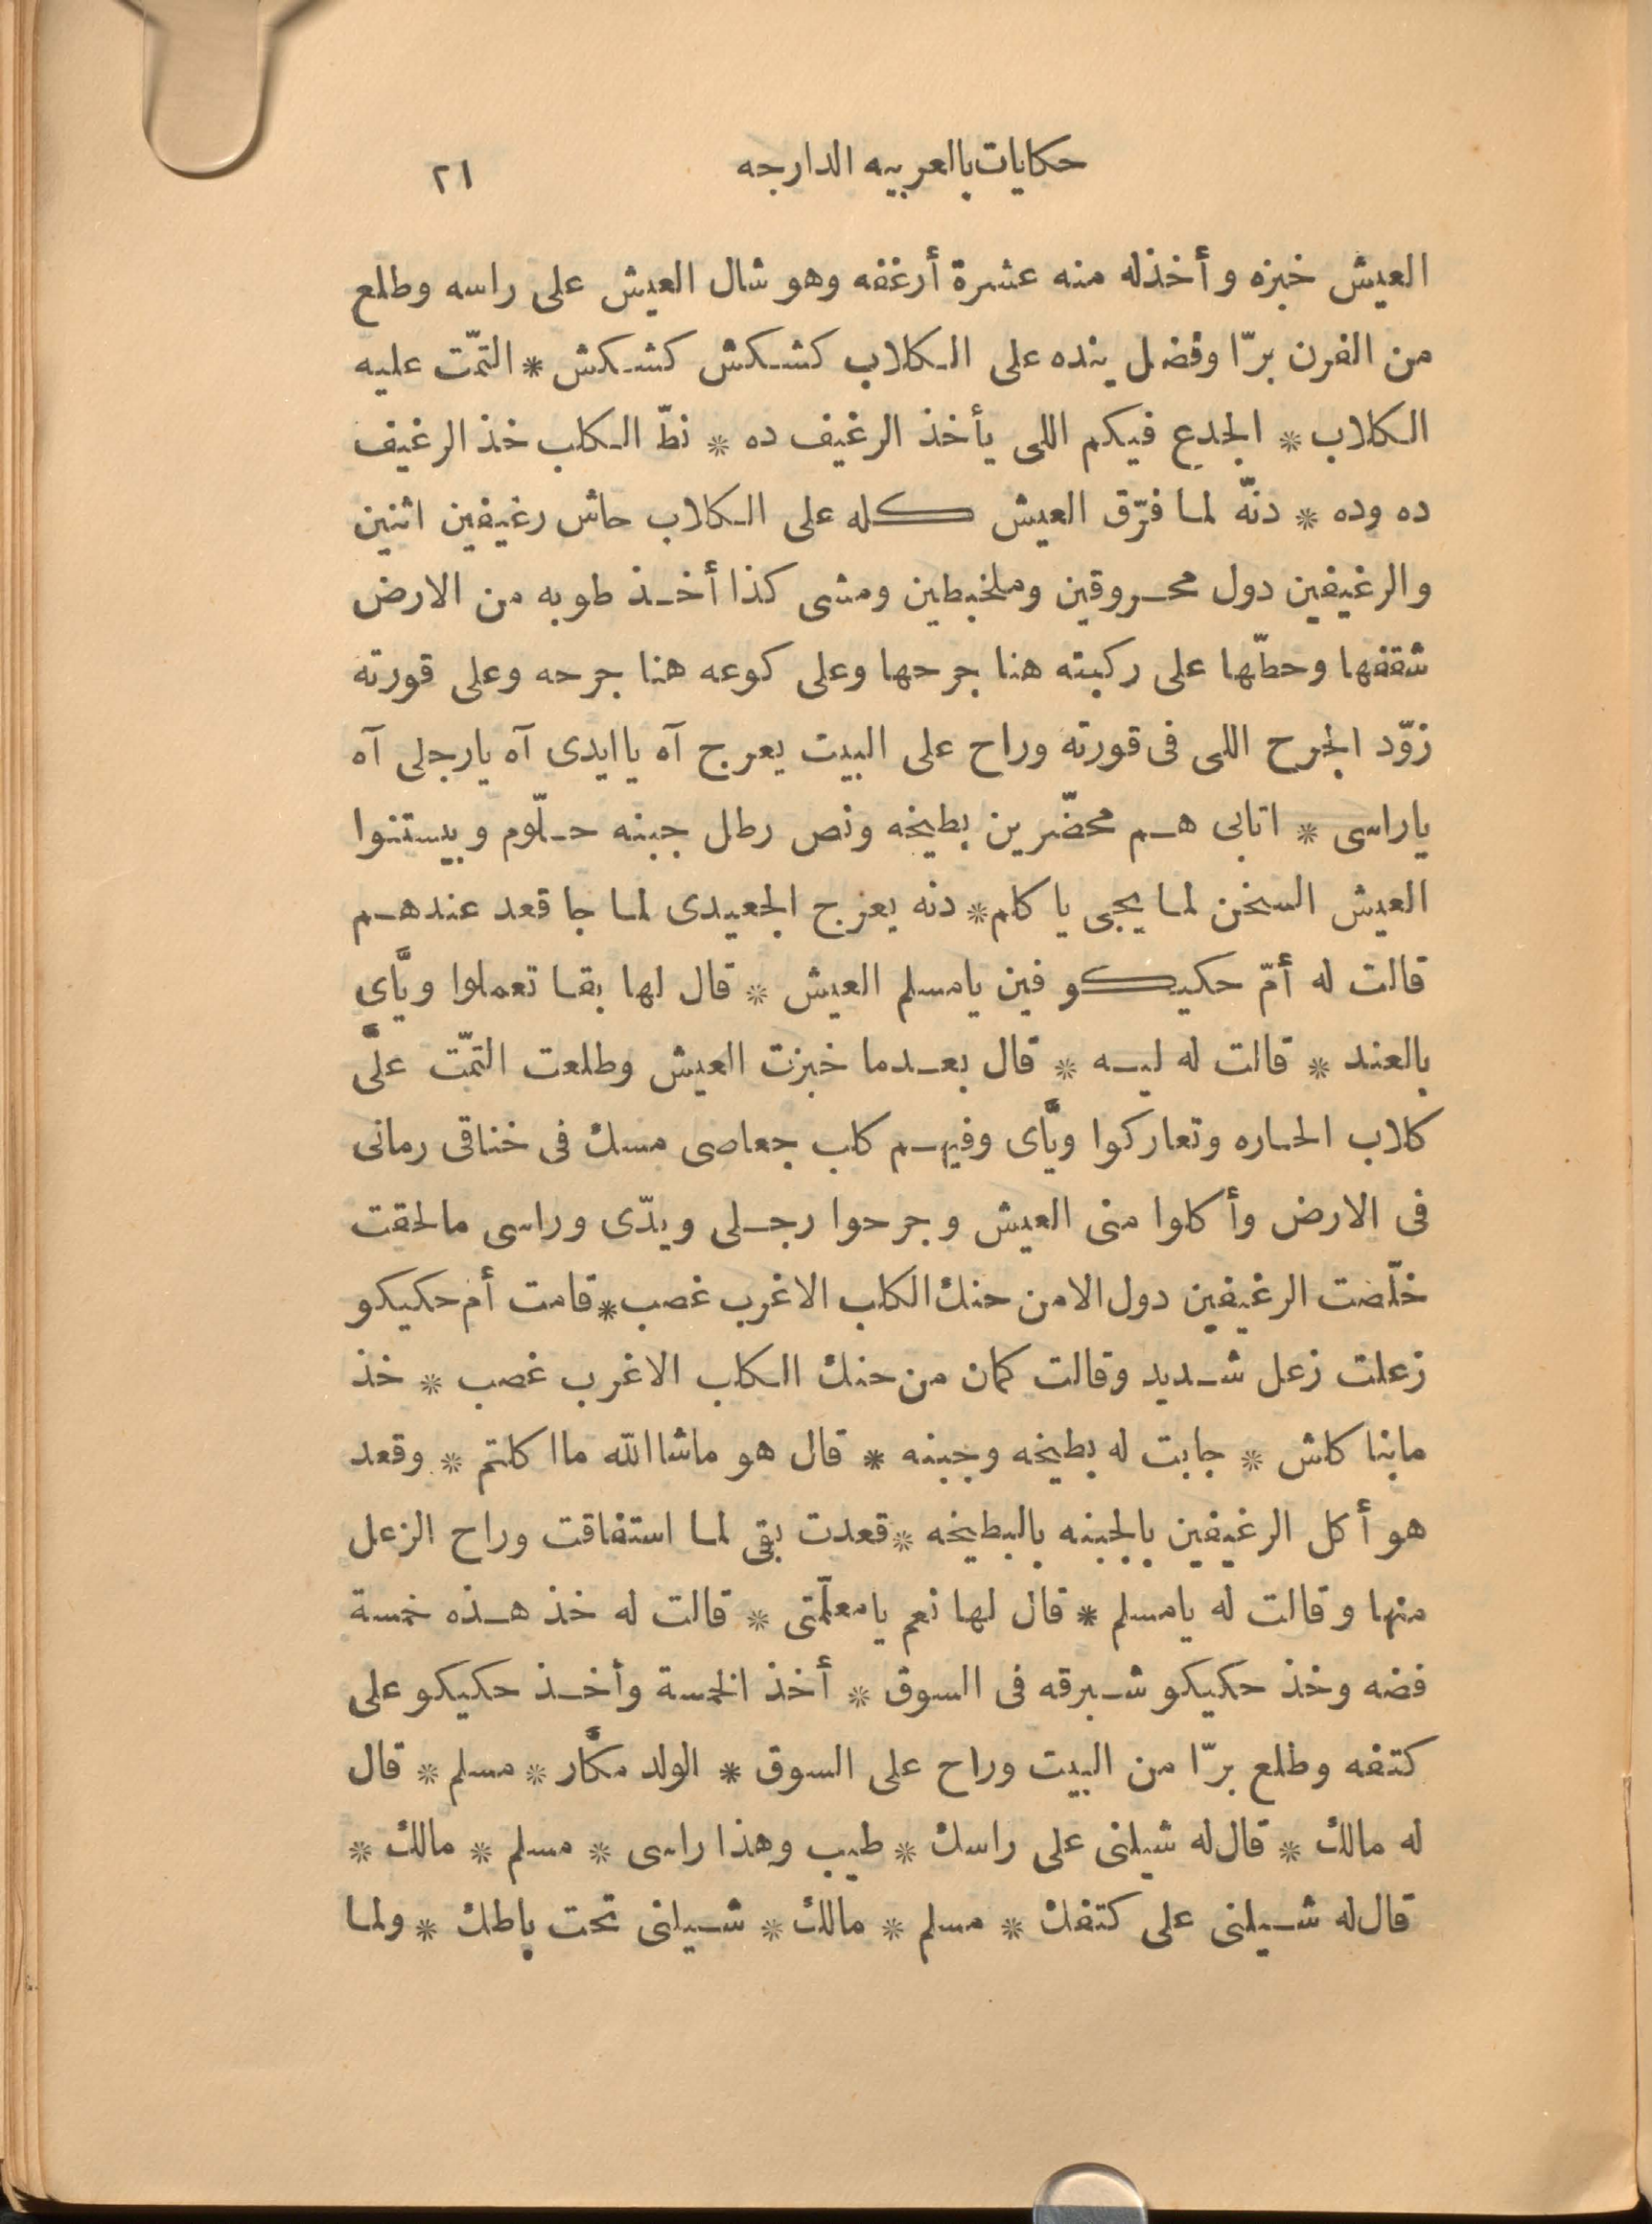 حكايات بالعربيه الدارجه ٢١
العيش خبزه وأخذله منه عشرة أرغفه وهو شال العيش على راسه وطلع
من الفرن برّا وفضل ينده على الكلاب كشكش كشكش * التمّت عليه
الكلاب * الجدع فيكم اللى يأخذ الرغيف ده * نطّ الكلب خذ الرغيف
ده وده * دنّه لما فرّق العيش كله على الكلاب حاش رغيفين اثنين
والرغيفين دول محروقين وملخبطين ومشى كذا أخذ طوبه من الارض
شقفها وحطّها على ركبته هنا جرحها وعلى كوعه هنا جرحه وعلى قورته
زوّد الجرح اللى فى قورته وراح على البيت يعرج آه يا ايدى آه يا رجلى آه
يا راسى * اتابى هم محضّرين بطيخه ونص رطل جبنه حلّوم وبيستنوا
العيش السخن لما يجى يا كلم * دنه يعزج الجعيدى لما جا قعد عندهم
قالت له أمّ حكيكو فين يا مسلم العيش * قال لها بقا تعملوا ويَّاى
بالعند * قالت له ليه * قال بعدما خبزت العيش وطلعت التمّت علَّى
كلاب الحاره وتعاركوا ويَّاى وفيهم كلب جعاصى مسك فى خناقى رمانى
فى الارض وأكلوا منى العيش وجرحوا رجلى ويدّى وراسى مالحقت
خلّصت الرغيفين دول الا من حنك الكلب الاغرب غصب * قامت أم حكيكو
زعلت زعل شديد وقالت كمان من حنك الكلب الاغرب غصب * خذ
مابنا كلش * جابت له بطيخه وجبنه * قال هو ماشاالله ماا كلتم * وقعد
هو أكل الرغيفين بالجبنه بالبطيخه * قعدت بقى لما استفاقت وراح الزعل
منها وقالت له يا مسلم * قال لها نعم يا معلّمتى * قالت له خذ هذه خمسة
فضه وخذ حكيكو شبرقه فى السوق * أخذ الخمسة وأخذ حكيكو على
كتفه وطلع برّا من البيت وراح على السوق * الولد مكَّار * مسلم * قال
له مالك * قال له شيلنى على راسك * طيب وهذا راسى * مسلم * مالك *
قال له شيلنى على كتفك * مسلم * مالك * شيلنى تحت باطك * ولما